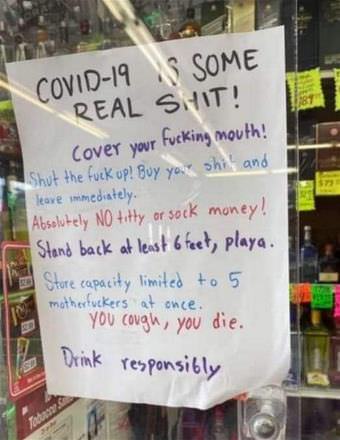 COVID-19 IS SOME
REAL SHIT!
Cover your fucking mouth!
Shut the fuck up! Buy your shit and
leave immediately.
Absolutely NO titty or sock money!
Stand back at least 6 feet, playa.
Store capacity limited to 5
motherfuckers at once.
You cough, you die.
Drink responsibly
Tobacco